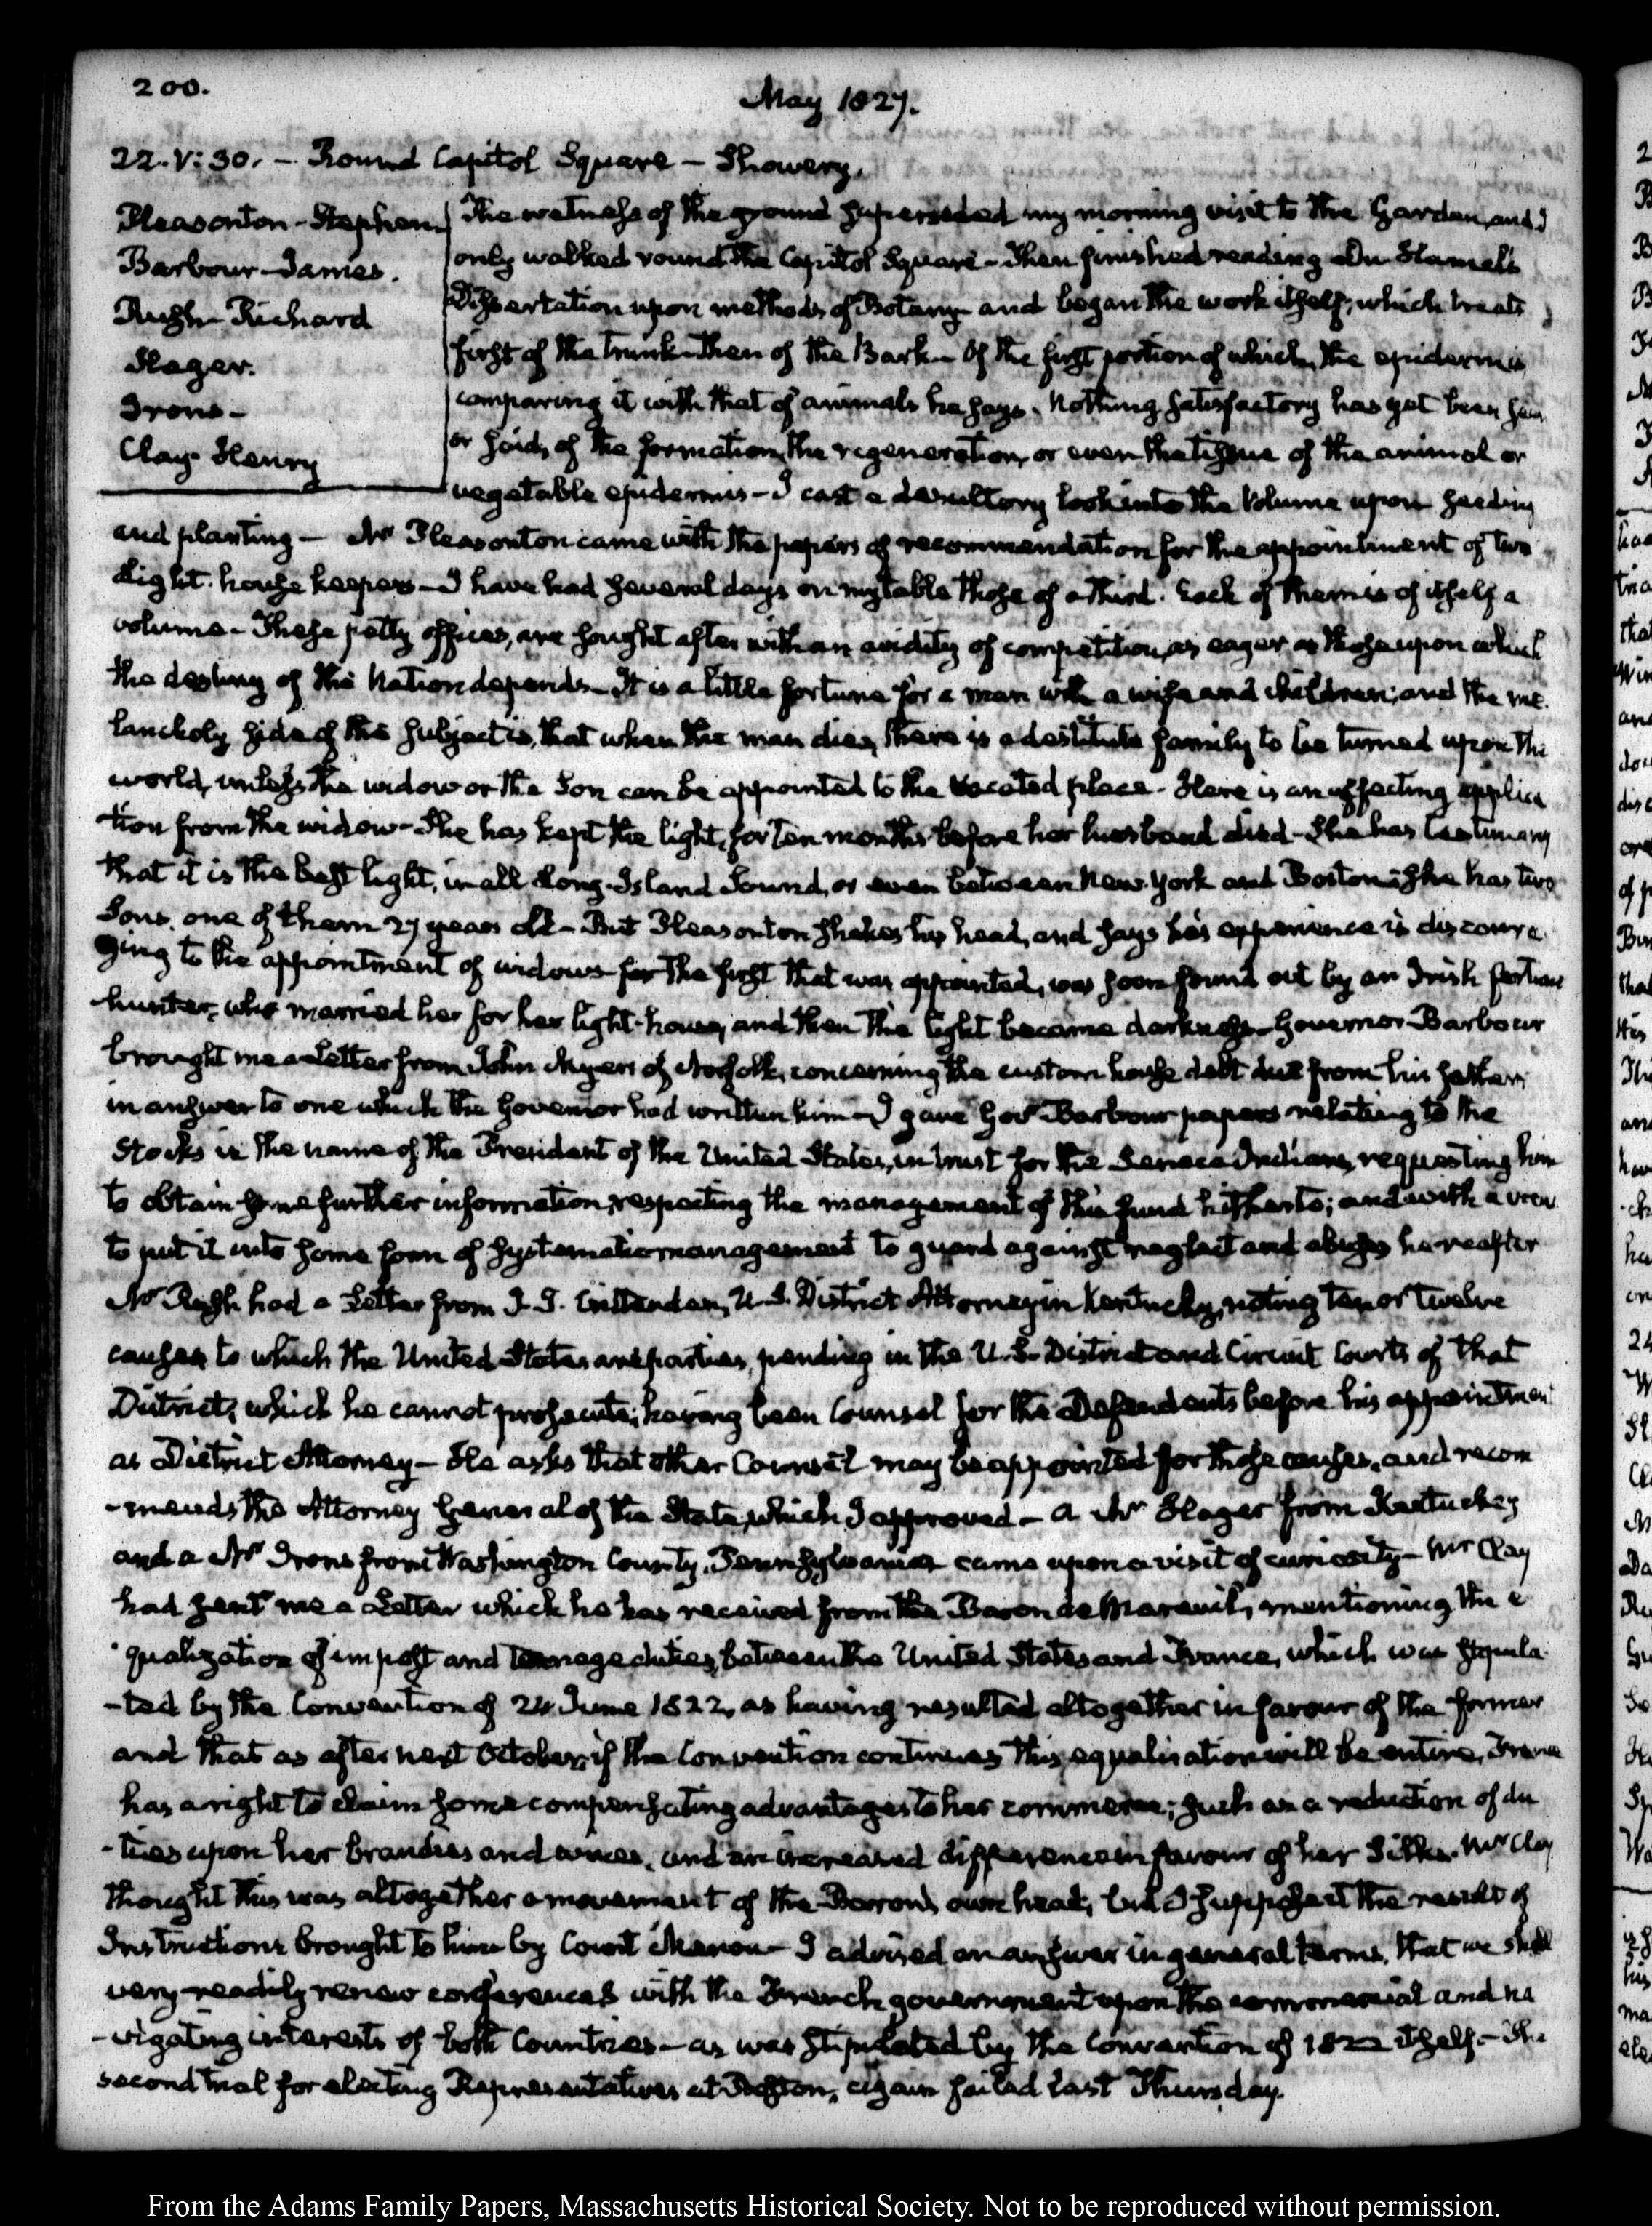 200.
May 1827.
22. V: 30. – Round Capitol Square – Showery.
Pleasonton – Stephen
Barbour – James.
Rush – Richard
Hager.
Irons –
Clay – Henry
The wetness of the ground superseded my morning visit to the Garden, and I
only walked round the Capitol Square – Then finished reading Du Hamel's
Dissertation upon methods of Botany – and began the work itself, which treats
first of the Trunk – Then of the Bark – Of the first portion of which, the epidermis
comparing it with that of animals he says. Nothing satisfactory has yet been seen
or said, of the formation, the regeneration, or even the tissue of the animal or
vegetable epidermis – I cast a desultory look into the Volume upon seeding
and planting – Mr Pleasonton came with the papers of recommendation for the appointment of two
Light-house keepers – I have had several days on my table those of a third. Each of them is of itself a
volume – These petty offices, are sought after with an avidity of competition, as eager as those upon which
the destiny of the Nation depends – It is a little fortune for a man with a wife and children; and the me-
lancholy side of the subject is, that when the man dies, there is a destitute family to be turned upon the
world, unless the widow or the Son can be appointed to the vacated place – Here is an affecting applica
tion from the widow – She has kept the light, for ten months before her husband died – She has testimony
that it is the best light, in all Long-Island Sound, or even between New-York and Boston; she has two
Sons, one of them 27 years old – But Pleasonton shakes his head, and says his experience is discoura
ging to the appointment of widows – for the first that was appointed, was soon found out by an Irish fortune
hunter, who married her for her light-house, and then the light became darkness – Governor Barbour
brought me a Letter from John Myers of Norfolk, concerning the custom house debt due from his father,
in answer to one which the Governor had written him – I gave Govr Barbour papers relating to the
Stocks in the name of the President of the United States, in trust for the Seneca Indians, requesting him
to obtain some further information, respecting the management of this fund hitherto; and with a view
to put it into some form of systematic management to guard against neglect and abuses hereafter
Mr Rush had a Letter from J. J. Crittenden, U.S. District Attorney in Kentucky, noting ten or twelve
causes to which the United States are parties, pending in the U.S. District and Circuit Courts of that
District, which he cannot prosecute; having been Counsel for the Defendants before his appointment
as District Attorney – He asks that other Counsel may be appointed for those causes, and recom
-mends the Attorney General of the State, which I approved – A Mr Hager from Kentuckey
and a Mr Irons from Washington County, Pennsylvania came upon a visit of curiosity – Mr Clay
had sent me a Letter which he has received from the Baron de Mareuil, mentioning the e
-qualization of impost and tonnage duties, between the United States and France, which was stipula
-ted by the Convention of 24 June 1822, as having resulted altogether in favour of the former
and that as after next October, if the Convention continues this equalization will be entire, France
has a right to claim some compensating advantages to her commerce; such as a reduction of du
-ties upon her brandies and wines, and an increased difference in favour of her Silks. Mr Clay
thought this was altogether a movement of the Baron's own head, but I suppose it the result of
Instructions brought to him by Count Menou – I advised an answer in general terms, that we shall
very readily renew conferences with the French government upon the commercial and na
-vigating interests of both Countries – as was stipulated by the Convention of 1822 itself – The
second trial for electing Representatives at Boston, again failed last Thursday.
From the Adams Family Papers, Massachusetts Historical Society. Not to be reproduced without permission.